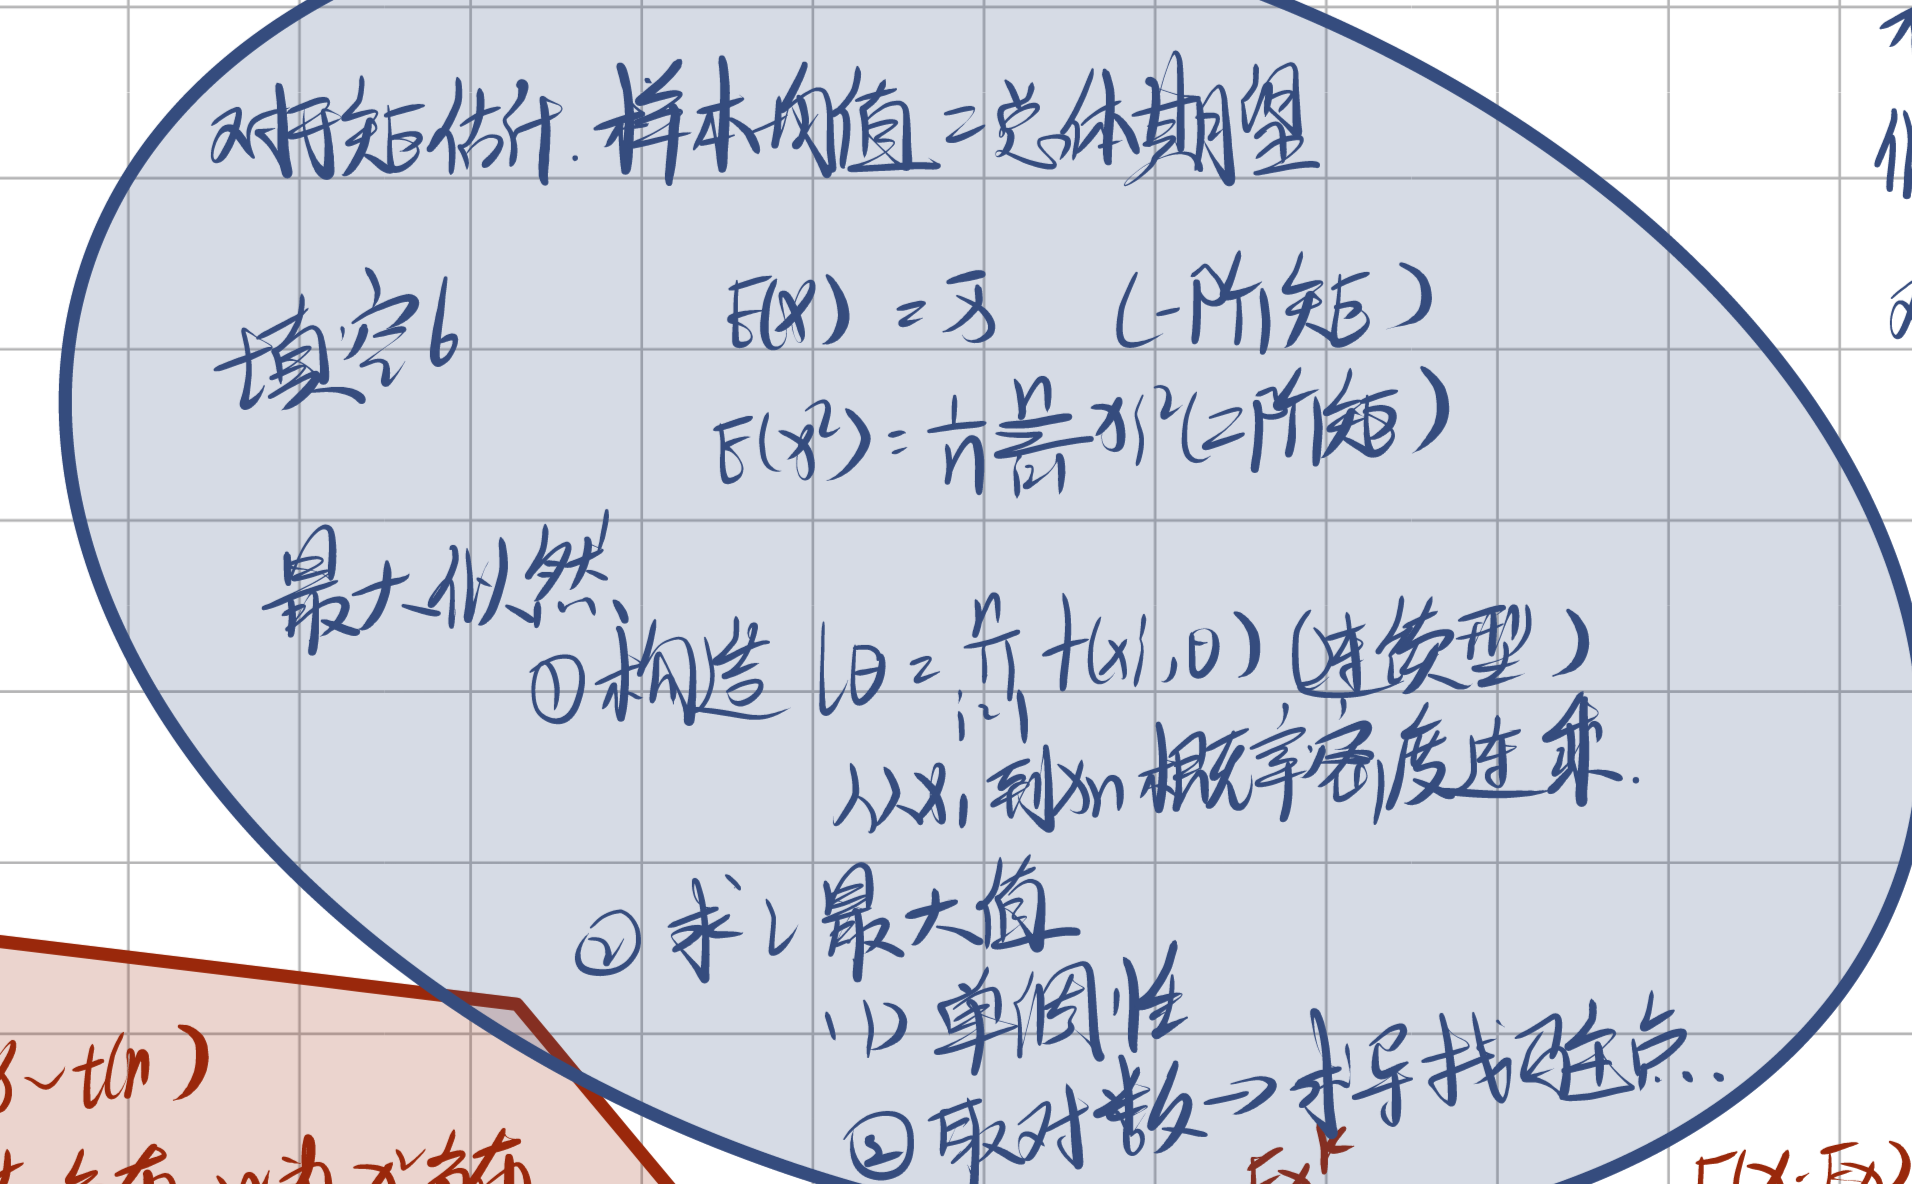 对于矩估计.样本均值=总体期望
填空6
E(x) = x̄ (一阶矩)
E(x²) = 1/n ∑ᵢ₌₁ⁿ xi² (二阶矩)
最大似然
① 构造 Lθ = ∏ᵢ₌₁ⁿ f(xi,θ) (连续型)
从x₁到xn概率密度连乘.
② 求L最大值
(1) 单调性
② 取对数→求导找驻点.
~t(n)
布
Ex^k
E(x-Ex)